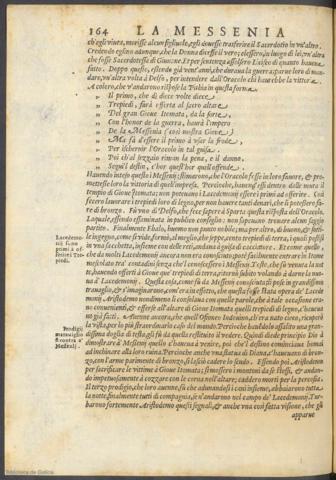 164 LA MESSENIA
ch'egli viuea, morisse alcun figliuolo, egli douesse trasferire il Sacerdotio in vn'altro.
Credendo eglino adunque, che la Donna dicesse il vero; elessero, in luogo di lei, vn'altra
che fosse Sacerdotessa di Giunone. Et per sentenza assolsero di quanto haueua
fatto. Doppo questo, essendo già vent'anni, che duraua la guerra; parue loro di man-
dare, vn'altra volta à Delfo, per intendere dall'Oracolo chi haurebbe la vittoria.
A coloro, che v'andarono rispose la Pithia in questa forma
„ Il primo, che di diece volte diece
„ Trepiedi, farà offerta al sacro altare
„ Del gran Gioue Itomata, da la sorte
„ Con l'honor de la guerra, haurà l'impero
„ De la Messenia (così mostra Gioue)
„ Ma fà d'essere il primo à vsar la frode,
„ Per ischernir l'Oracolo in tal guisa.
„ Poi ch'al sezzaio riman la pena, e il danno.
„ Segui'l destin, c'hor questi hor quelli offende.
Hauendo inteso questo i Messenij; stimarono, che l'Oracolo fosse in loro fauore, & pro-
mettesse loro la vittoria di quell'impresa. Percioche, hauend'essi dentro delle mura il
tempio di Gioue Itomata; non poteuano i Lacedemonij essere i primi ad offerire. Così
fecero lauorare i trepiedi loro di legno, per non hauere tanti denari, che si potessero fa-
re di bronzo. Fù vno di Delfo, che fece sapere à Sparta questa risposta dell'Oracolo.
Laquale, essendo intesa da' Lacedemonij; non sapeuano trouare alcun saggio
partito. Finalmente Ebalo, huomo non punto nobile; ma per altro, di buono, & sotti-
le ingegno, come si vide, formò, al meglio, che seppe, cento trepiedi di terra, i quali postosi
in vna sacchetta, insieme con delle reti, andaua à guisa di cacciatore. Et come quello,
che da molti Lacedemonij ancora non era conosciuto; potè facilmente entrare in Itome
mescolato tra' contadini senza che'l conoscessero i Messenij. Tosto, che fù venuta la not-
te, hauendo offerti à Gioue que' trepiedi di terra, ritornò subito volando à darne la nuo-
ua a' Lacedemonij. Questa cosa, come fù da' Messenij conosciuta; li pose in grandissimo
trauaglio, & s'imaginarono, com'era in effetto, che questa fosse stata opera de' Lacede-
monij. Aristodemo nondimeno li consolaua con quelle parole, che à tale occasione era-
no conuenienti, & offerse all'altare di Gioue Itomata quelli trepiedi di legno, c'haueua-
no già fatti. Auenne ancora, che quell'Ofioneo Indouino, ch'era nato cieco, ricuperò
la vista, per il più strano caso del mondo. Percioche hauendolo assalito una gran-
dissima doglia di testa, gli fù da quella restituito il vedere. Quindi diede principio Dio à
dimostrare a' Messenij quello c'haueua à venire, poi che'l destino cominciaua homai
ad inchinare alla loro ruina. Percioche anche vna statua di Diana, c'haueuano di bron-
zo, con l'arme parimente di bronzo, si lasciò cadere lo scudo. Essendo poi Aristodemo
per sacrificare le vittime à Gioue Itomata; si mossero i montoni da se stessi, & andan-
do impetuosamente à cozzare con le corna nell'altare; caddero morti per la percossa.
Il terzo prodigio, che loro auenne, fù che adunandosi i cani insieme, abbaiarono tutta
la notte, finalmente tutti di compagnia, se n'andarono nel campo de' Lacedemonij. Tur-
barono fortemente Aristodemo questi segnali, & anche vna così fatta visione, che gli
apparue
Lacedemo-
nij sono
primi à of-
ferire i Tre-
piedi.
Prodigij
marauigliosi
contra a'
Messenij.
Biblioteca de Galicia